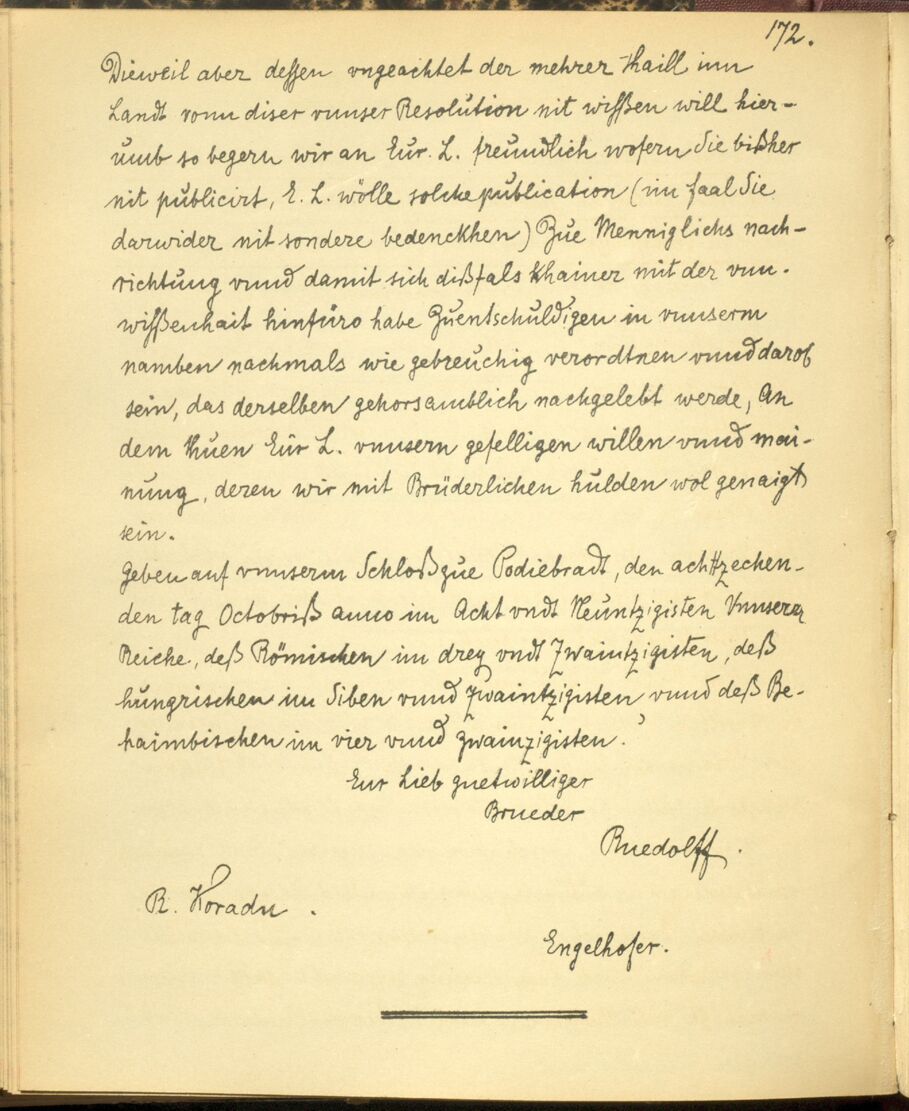 172.
Dieweil aber dessen vngeachtet der mehrer thaill inn
Landt vonn diser vnnser Resolution nit wissen will hier-
umb so begern wir an Eur. L. freundlich wofern Sie bißher
nit publicirt, E. L. wölle solche publication (im faal Sie
darwider nit sondere bedenckhen) Zue Menniglichs nach-
richtung vnnd damit sich dißfals khainer mit der vnn-
wissenhait hinfüro habe Zuentschuldigen in vnnserm
namben nachmals wie gebreuchig verordtnen vnnd darob
sein, das derselben gehorsamblich nachgelebt werde, An
dem thuen Eur L. vnnsern gefelligen willen vnnd mai-
nung, deren wir mit Brüderlichen hulden wol genaigt
sein.
Geben auf vnnserm Schloß zue Podiebradt, den achtzechen-
den tag Octobriß anno im Acht vndt Neuntzigisten Vnnserer
Reiche, deß Römischen im drey vndt Zwaintzigisten, deß
hungrischen im Siben vnnd Zwaintzigisten vnnd deß Be-
haimbischen im vier vnnd zwainzigisten.
Eur Lieb guetwilliger
Brueder
Ruedolff.
R. Koradu.
Engelhofer.